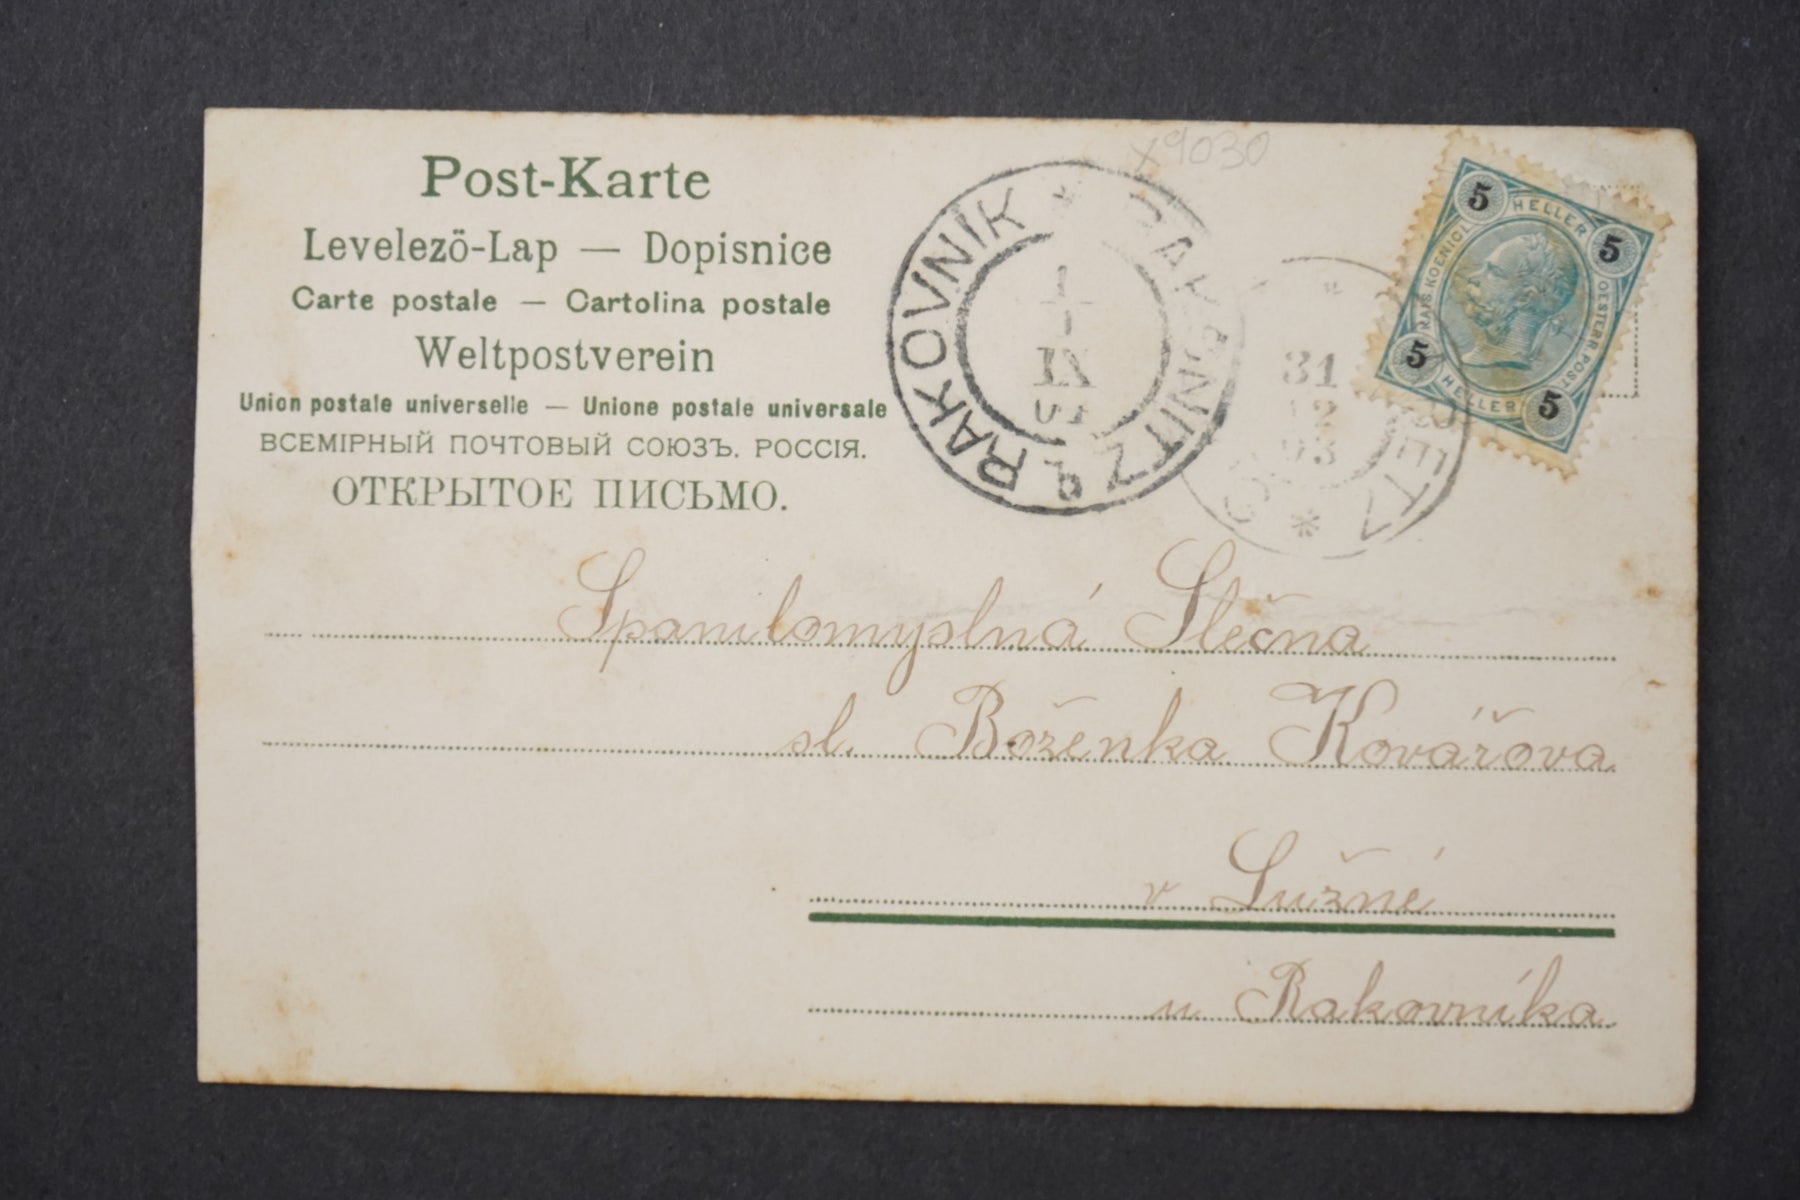 Post-Karte
Levelezö-Lap — Dopisnice
Carte postale — Cartolina postale
Weltpostverein
Union postale universelle — Unione postale universale
ВСЕМІРНЫЙ ПОЧТОВЫЙ СОЮЗЪ. РОССІЯ.
ОТКРЫТОЕ ПИСЬМО.
X9030
RAKOVNIK * RAKONITZ
31
12
03
5 HELLER 5
KAIS KOENIGL OESTERR POST
5 HELLER 5
Spanilomyslná Slečna
sl. Boženka Kovářova
v Lužné
u Rakovníka